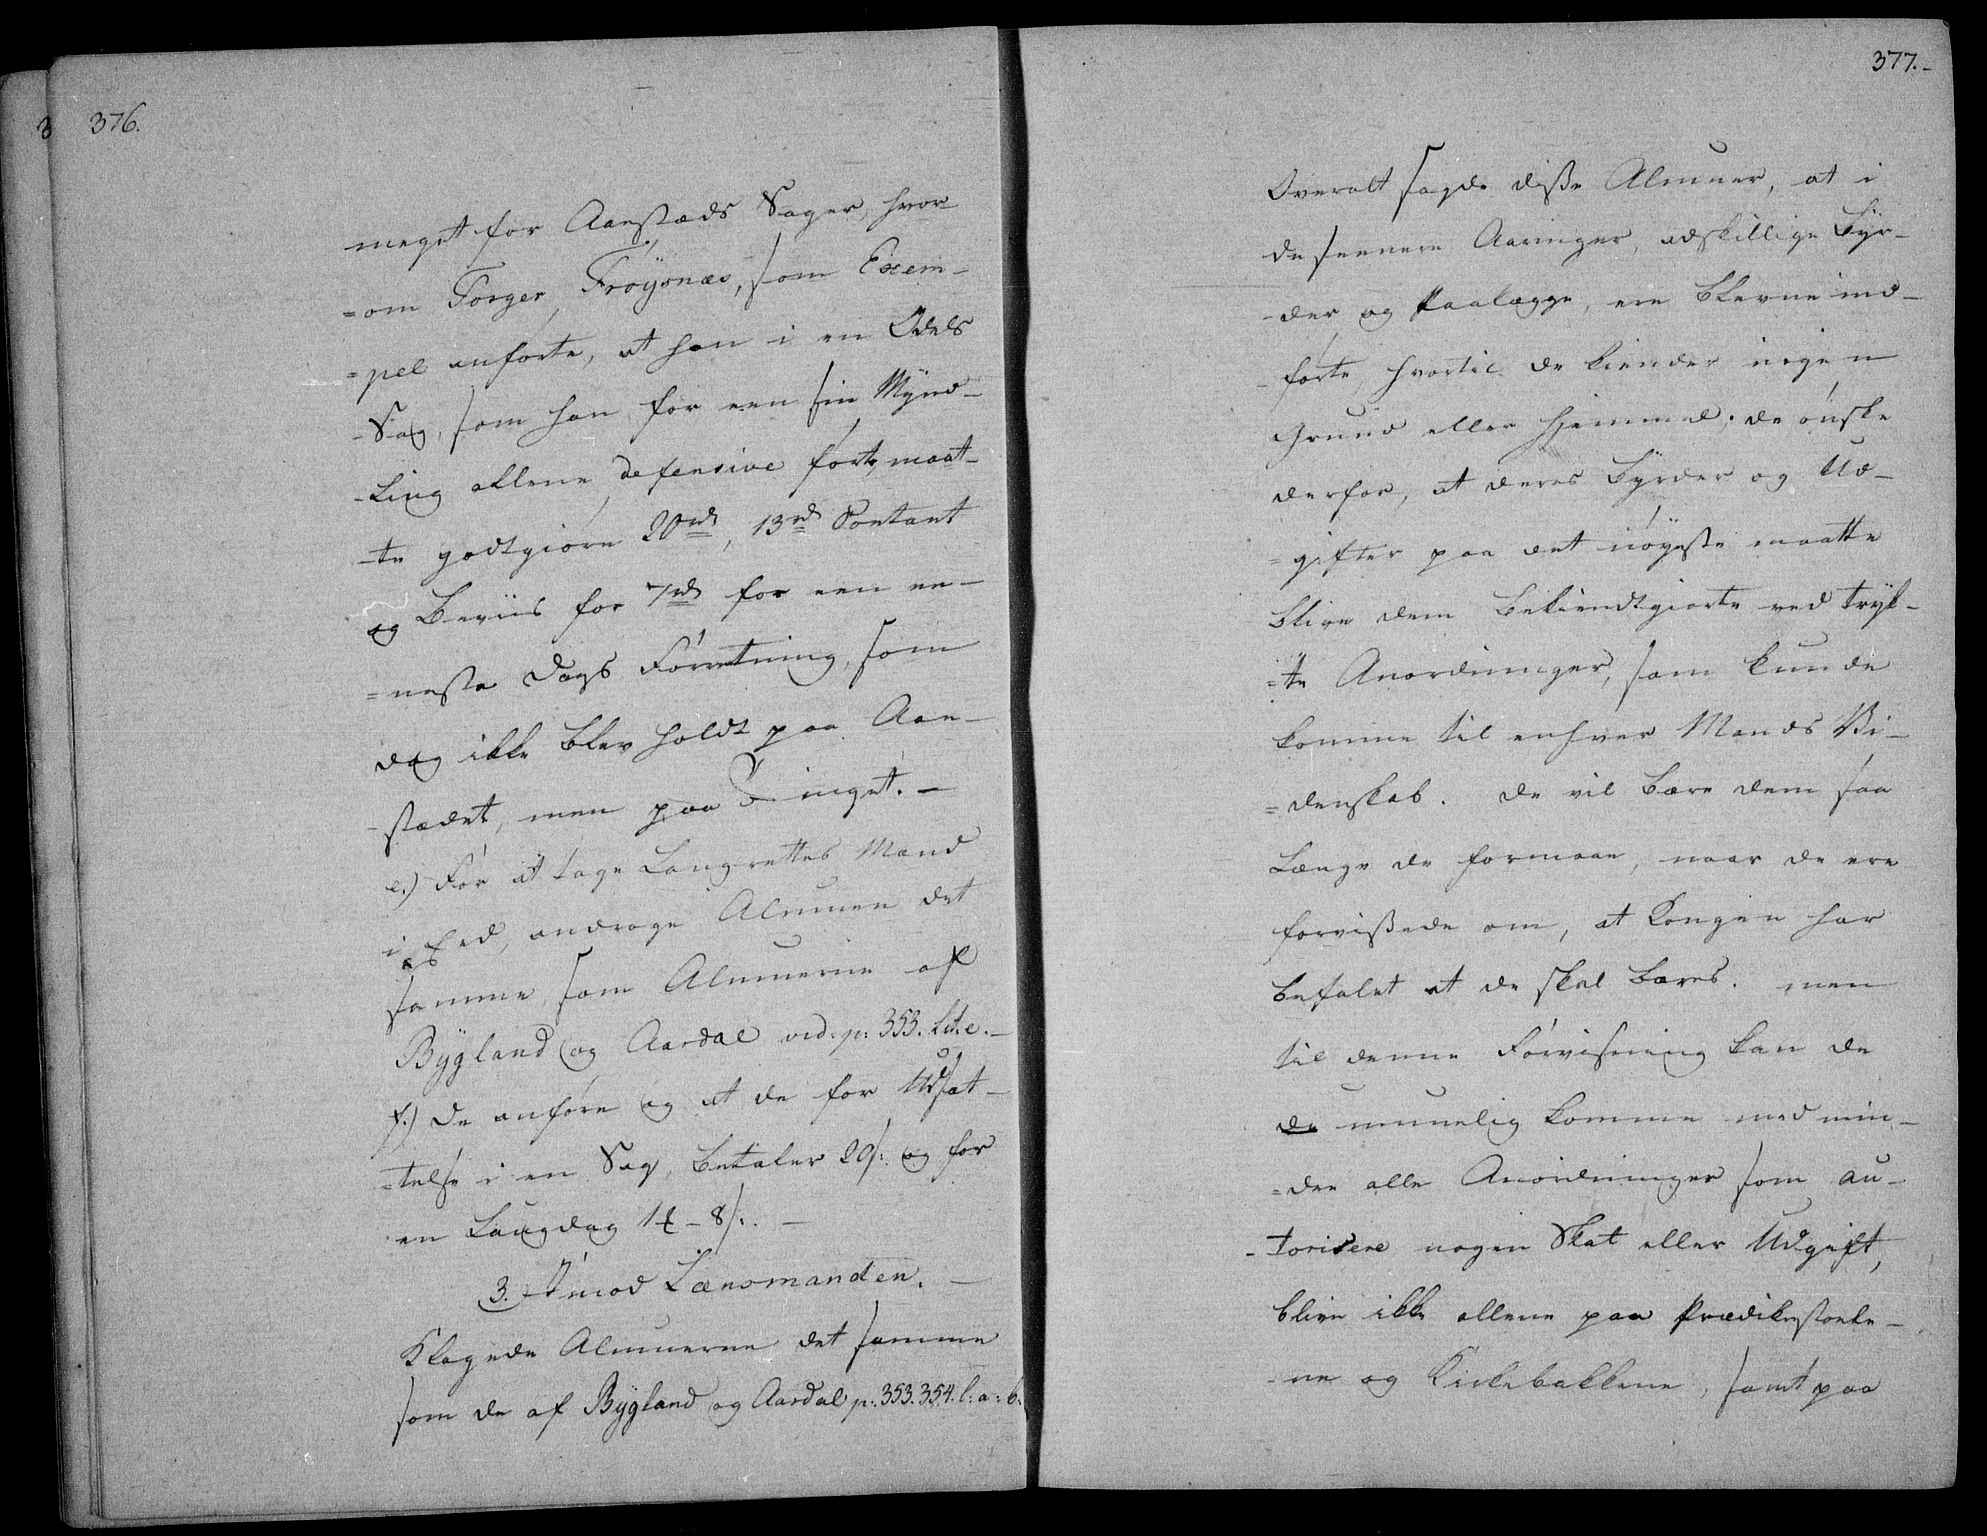 376.
meget for Aastæds Sager, hvor-
=om Torger Frøysnæs, som Exem-
=pel anførte, at han i en Odels
-Sag, som han for een sin Mynd-
-ling allene defensive førte, maat-
-te godtgiøre 20rd, 13rd Contant
og Beviis for 7rd for een en-
=neste Dags Forretning, som
dog ikke blev holdt paa Aa-
-stædet, men paa Tinget. -
e.) For at tage Laugrettes Mænd
i Eed, androge Almuen det
samme, som Almuerne af
Bygland og Aardal vid: p: 353. Lit. e. -
f.) De anføre og at de for Udsæt-
=telse i en Sag, betaler 20s: og for
en Laugdag 1# - 8s:. -
3.) Imod Lænsmanden. -
Klagede Almuerne det samme
som de af Bygland og Aardal p: 353. 354. l: a: b:
377.-
Overalt sagde disse Almuer, at i
de seenere Aaringer, adskillige Byr-
-der og Paalægge, ere blevne ind-
-førte, hvortil de kiender ingen
Grund eller Hiemmel; de ønske
derfor, at deres Byrder og Ud-
=gifter paa det nøyeste maatte
blive dem bekiendtgiorte ved tryk-
=te Anordninger, som kunde
komme til enhver Mands Vi-
=denskab. De vil bære dem saa
længe de formaae, naar de ere
forvissede om, at Kongen har
befalet at de skal bæres. men
til denne Forvisning kan de
de umuelig komme med min-
=dre alle Anordninger som au-
-torisere nogen Skat eller Udgift,
blive ikke allene paa Prædikestoele-
-ne og Kirkebakkene, samt paa